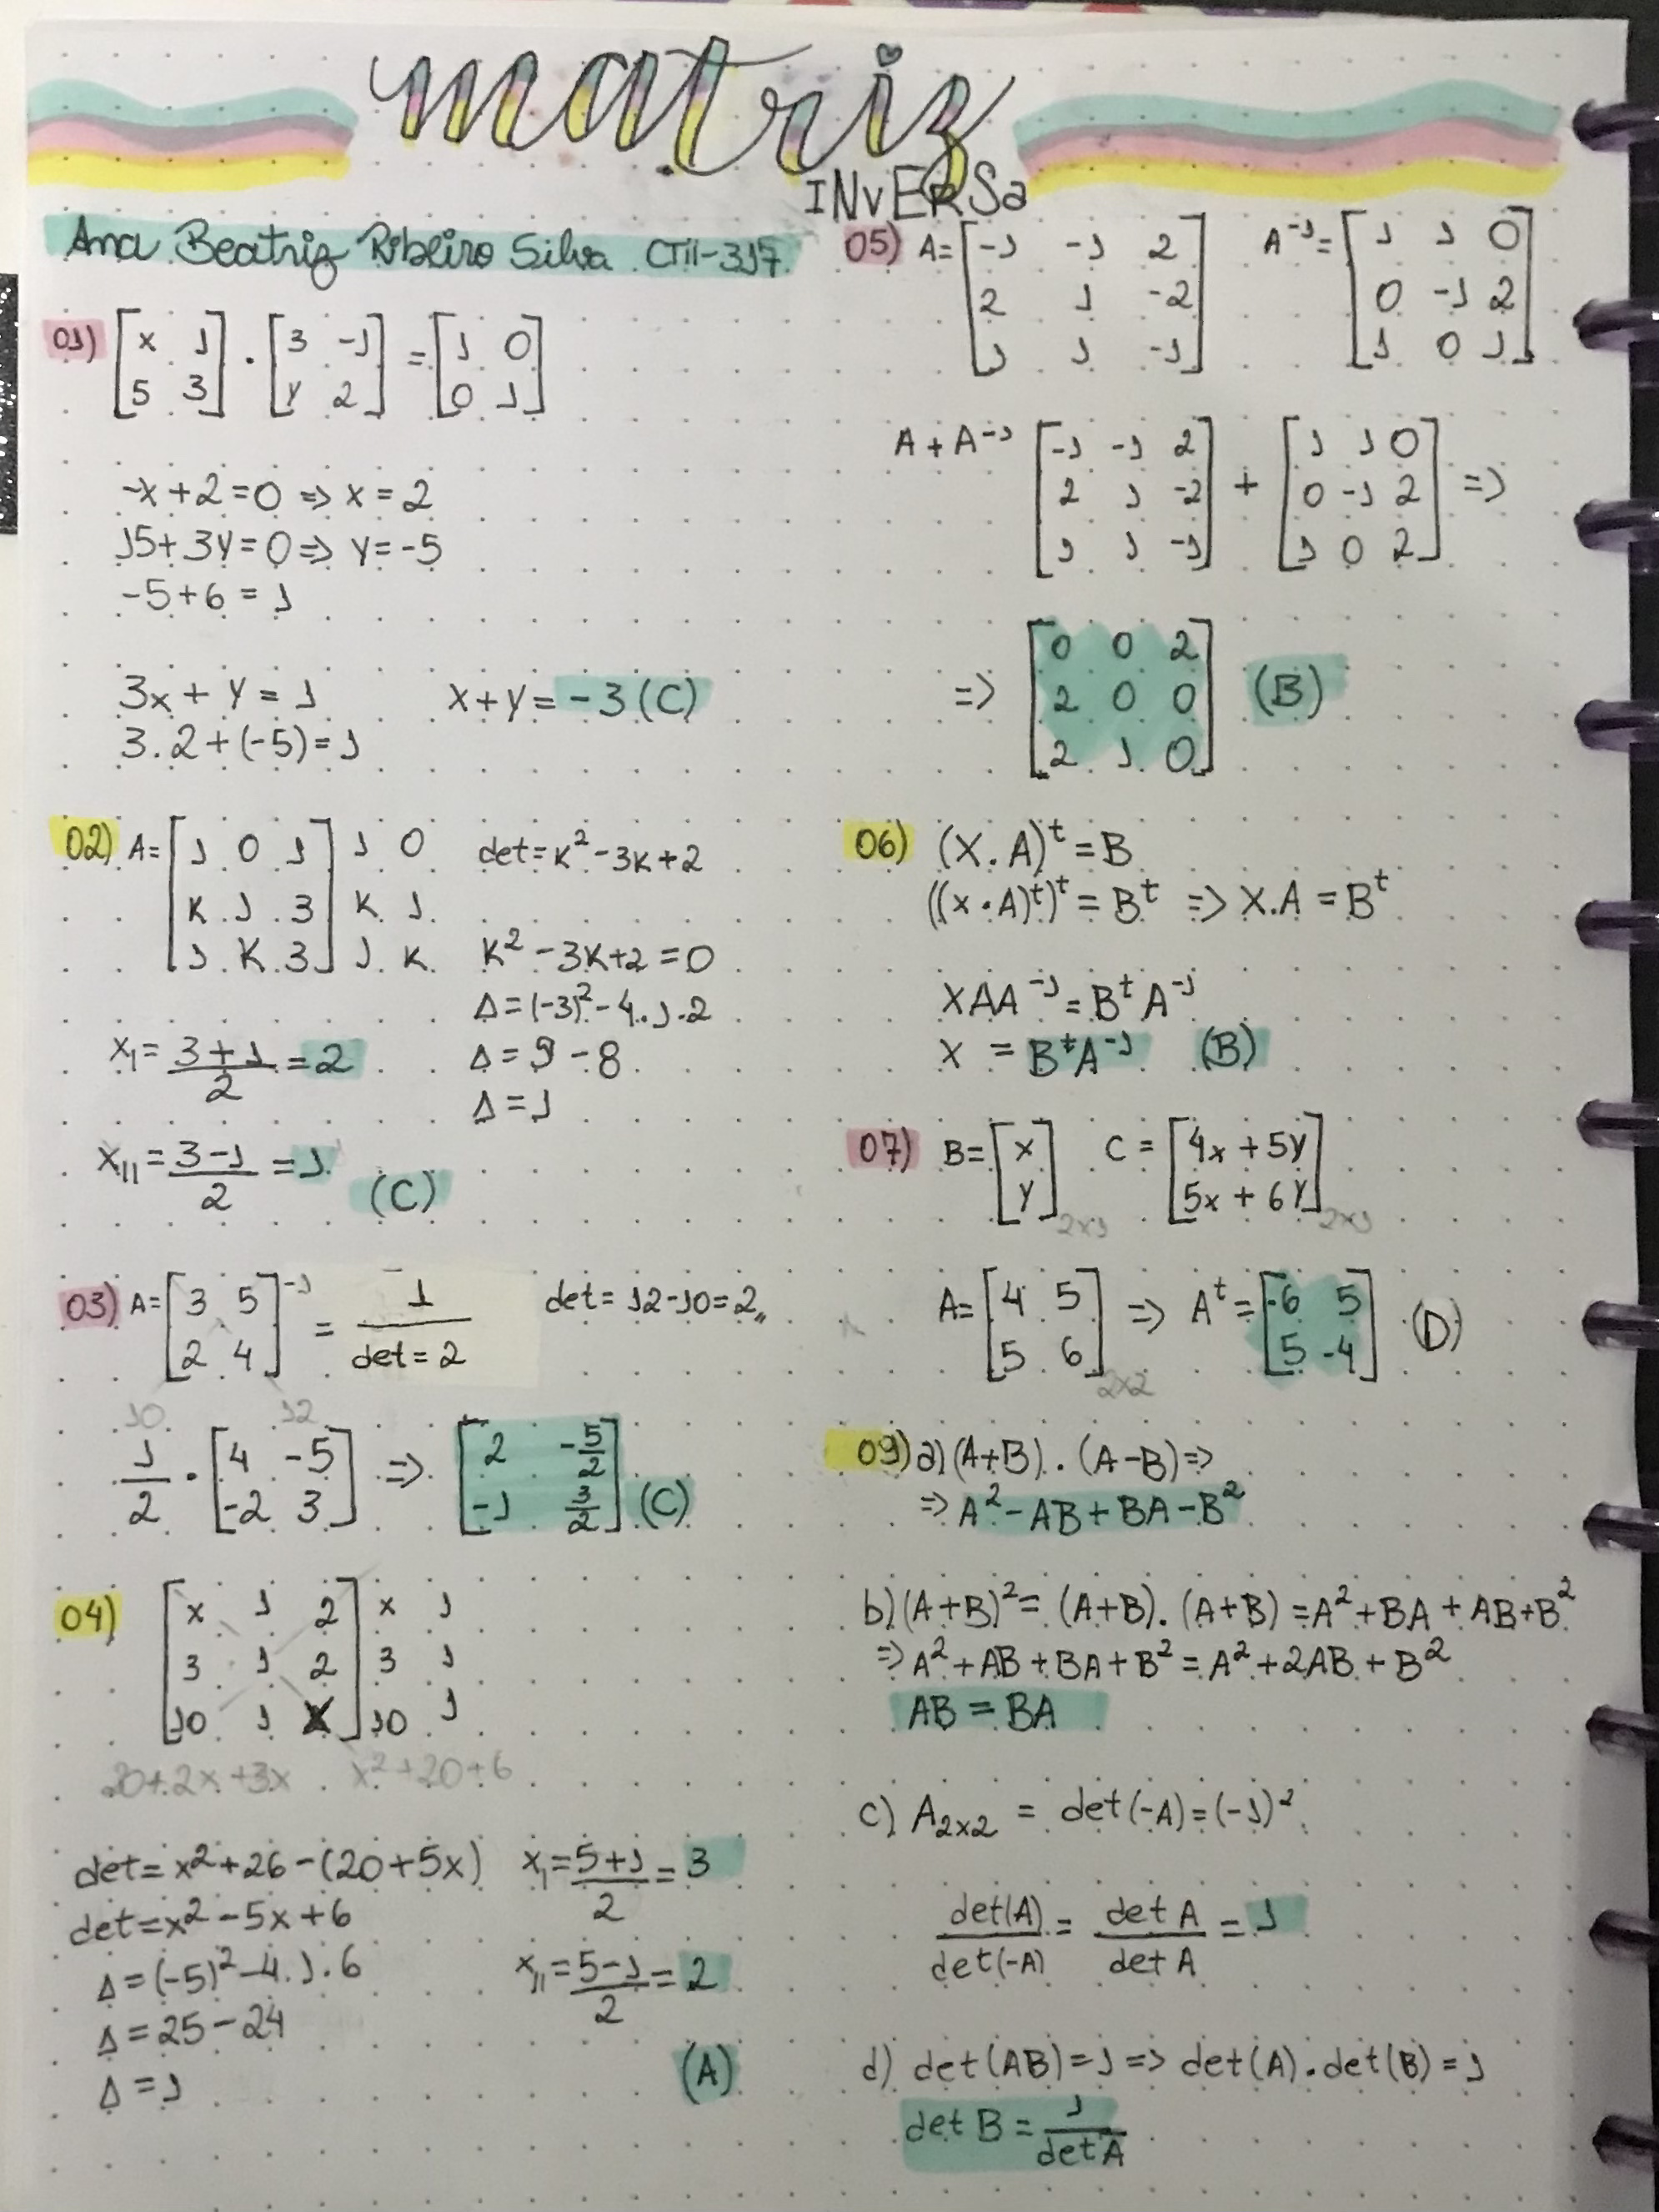 matriz
INvERSa
Ana Beatriz Ribeiro Silva CTII-317.
01) [x 1 / 5 3] . [3 -1 / y 2] = [1 0 / 0 1]
-x+2=0 => x=2
15+3y=0 => y=-5
-5+6=1
3x+y=1 x+y=-3 (C)
3.2+(-5)=1
02) A=[1 0 1 / K 1 3 / 1 K 3] 1 0 / K 1 / 1 K
det=K²-3K+2
K²-3K+2=0
Δ=(-3)²-4.1.2
Δ=9-8
Δ=1
x₁=3+1/2=2
x₁₁=3-1/2=1
(C)
03) A=[3 5 / 2 4]⁻¹ = 1/det=2 det=12-10=2,,
10 12
1/2 . [4 -5 / -2 3] => [2 -5/2 / -1 3/2] (C)
04) [x 1 2 / 3 1 2 / 10 1 x] x 1 / 3 1 / 10 1
20+2x+3x x²+20+6
det=x²+26-(20+5x)
det=x²-5x+6
Δ=(-5)²-4.1.6
Δ=25-24
Δ=1
x₁=5+1/2=3
x₁₁=5-1/2=2
(A)
05) A=[-1 -1 2 / 2 1 -2 / 1 1 -1] A⁻¹=[1 1 0 / 0 -1 2 / 1 0 1]
A+A⁻¹ [-1 -1 2 / 2 1 -2 / 1 1 -1] + [1 1 0 / 0 -1 2 / 1 0 2] =>
=> [0 0 2 / 2 0 0 / 2 1 0] (B)
06) (X.A)ᵗ=B
((x.A)ᵗ)ᵗ=Bᵗ => X.A=Bᵗ
XAA⁻¹=BᵗA⁻¹
X = BᵗA⁻¹ (B)
07) B=[x / y] 2x1 C=[4x+5y / 5x+6y] 2x1
A=[4 5 / 5 6] 2x2 => Aᵗ=[-6 5 / 5 -4] (D)
09) a) (A+B).(A-B)=>
=> A²-AB+BA-B²
b) (A+B)²=(A+B).(A+B)=A²+BA+AB+B²
=> A²+AB+BA+B²=A²+2AB+B²
AB=BA
c) A₂ₓ₂ = det(-A)=(-1)²
det(A)/det(-A) = det A/det A = 1
d) det(AB)=1 => det(A).det(B)=1
det B = 1/det A